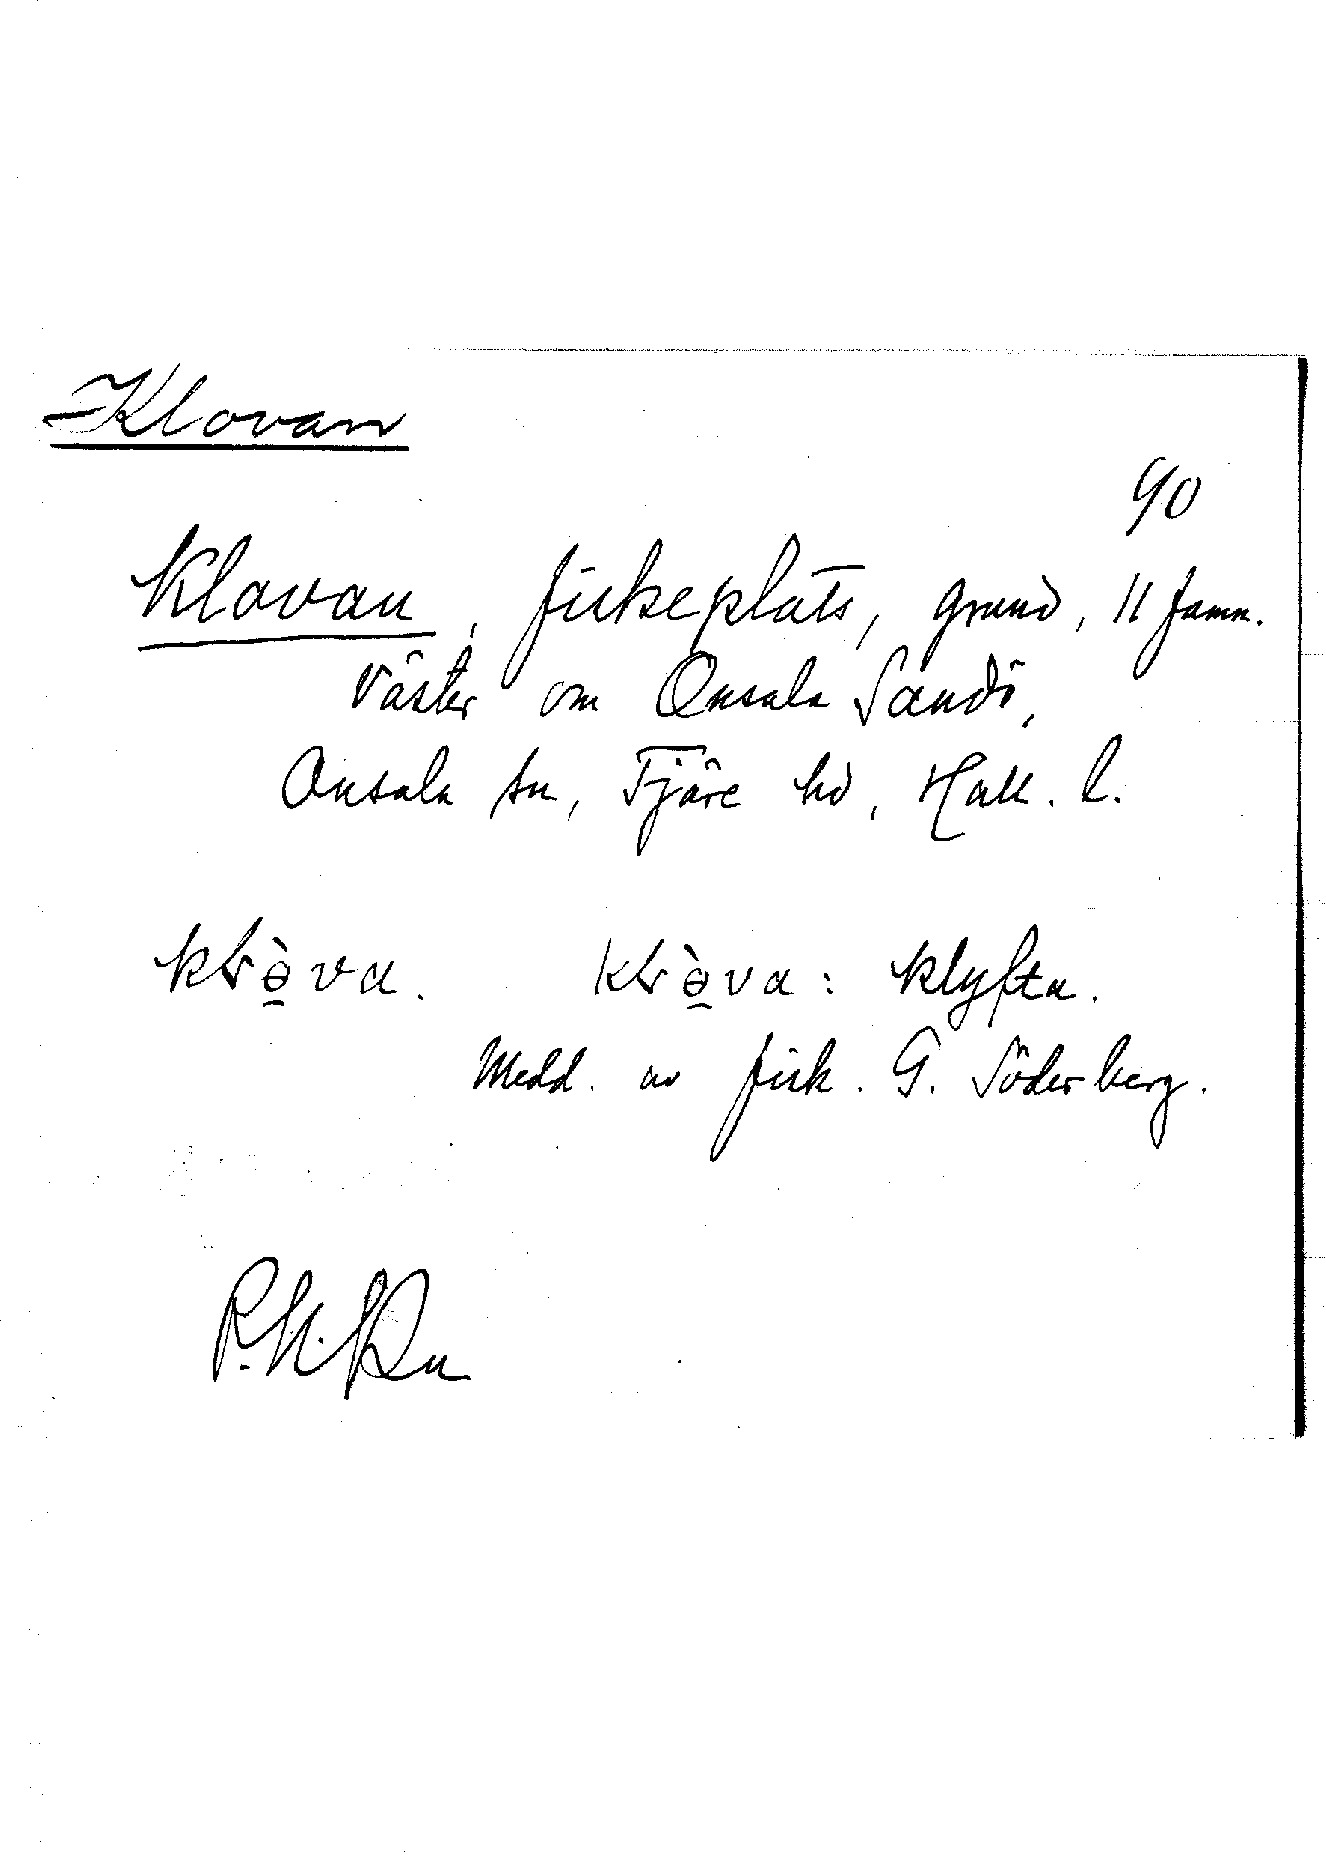 Klovan
90
Klovan, fiskeplats, grund, 11 famn.
Väster om Onsala Sandö,
Onsala sn, Fjäre hd, Hall. l.
klɵ̀va. klɵ̀va: klyfta.
Medd. av fisk. G. Söderberg.